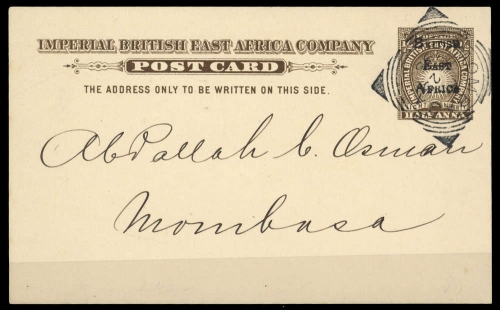 IMPERIAL BRITISH EAST AFRICA COMPANY
POST CARD
THE ADDRESS ONLY TO BE WRITTEN ON THIS SIDE.
EAST
AFRICA
HALF ANNA
Abdallah b. Osman
Mombasa